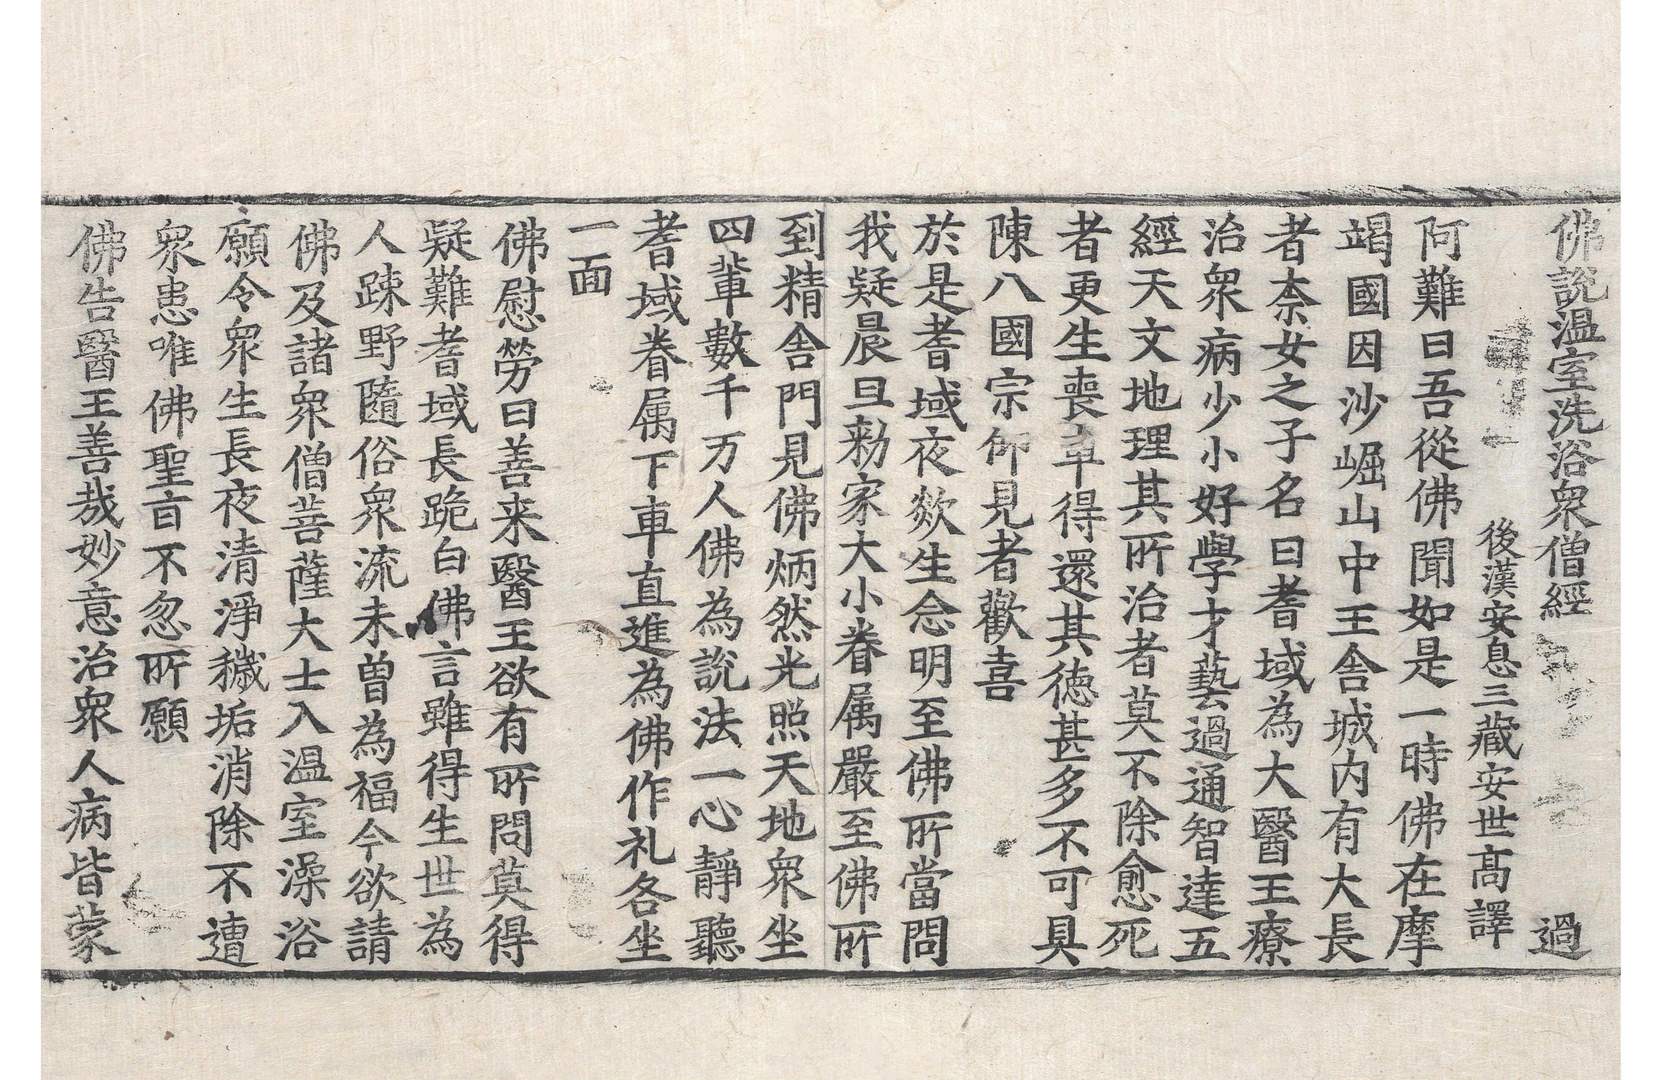 佛說温室洗浴衆僧經 過
後漢安息三藏安世高譯
阿難曰吾從佛聞如是一時佛在摩
竭國因沙崛山中王舍城内有大長
者柰女之子名曰耆域為大醫王療
治衆病少小好學才藝過通智達五
經天文地理其所治者莫不除愈死
者更生喪車得還其徳甚多不可具
陳八國宗仰見者歡喜
於是耆域夜欻生念明至佛所當問
我疑晨旦勑家大小眷属嚴至佛所
到精舍門見佛炳然光照天地衆坐
四輩數千万人佛為說法一心靜聽
耆域眷属下車直進為佛作礼各坐
一面
佛慰勞曰善来醫王欲有所問莫得
疑難耆域長跪白佛言雖得生世為
人踈野隨俗衆流未曾為福今欲請
佛及諸衆僧菩薩大士入温室澡浴
願令衆生長夜清淨穢垢消除不遭
衆患唯佛聖旨不忽所願
佛告醫王善哉妙意治衆人病皆蒙